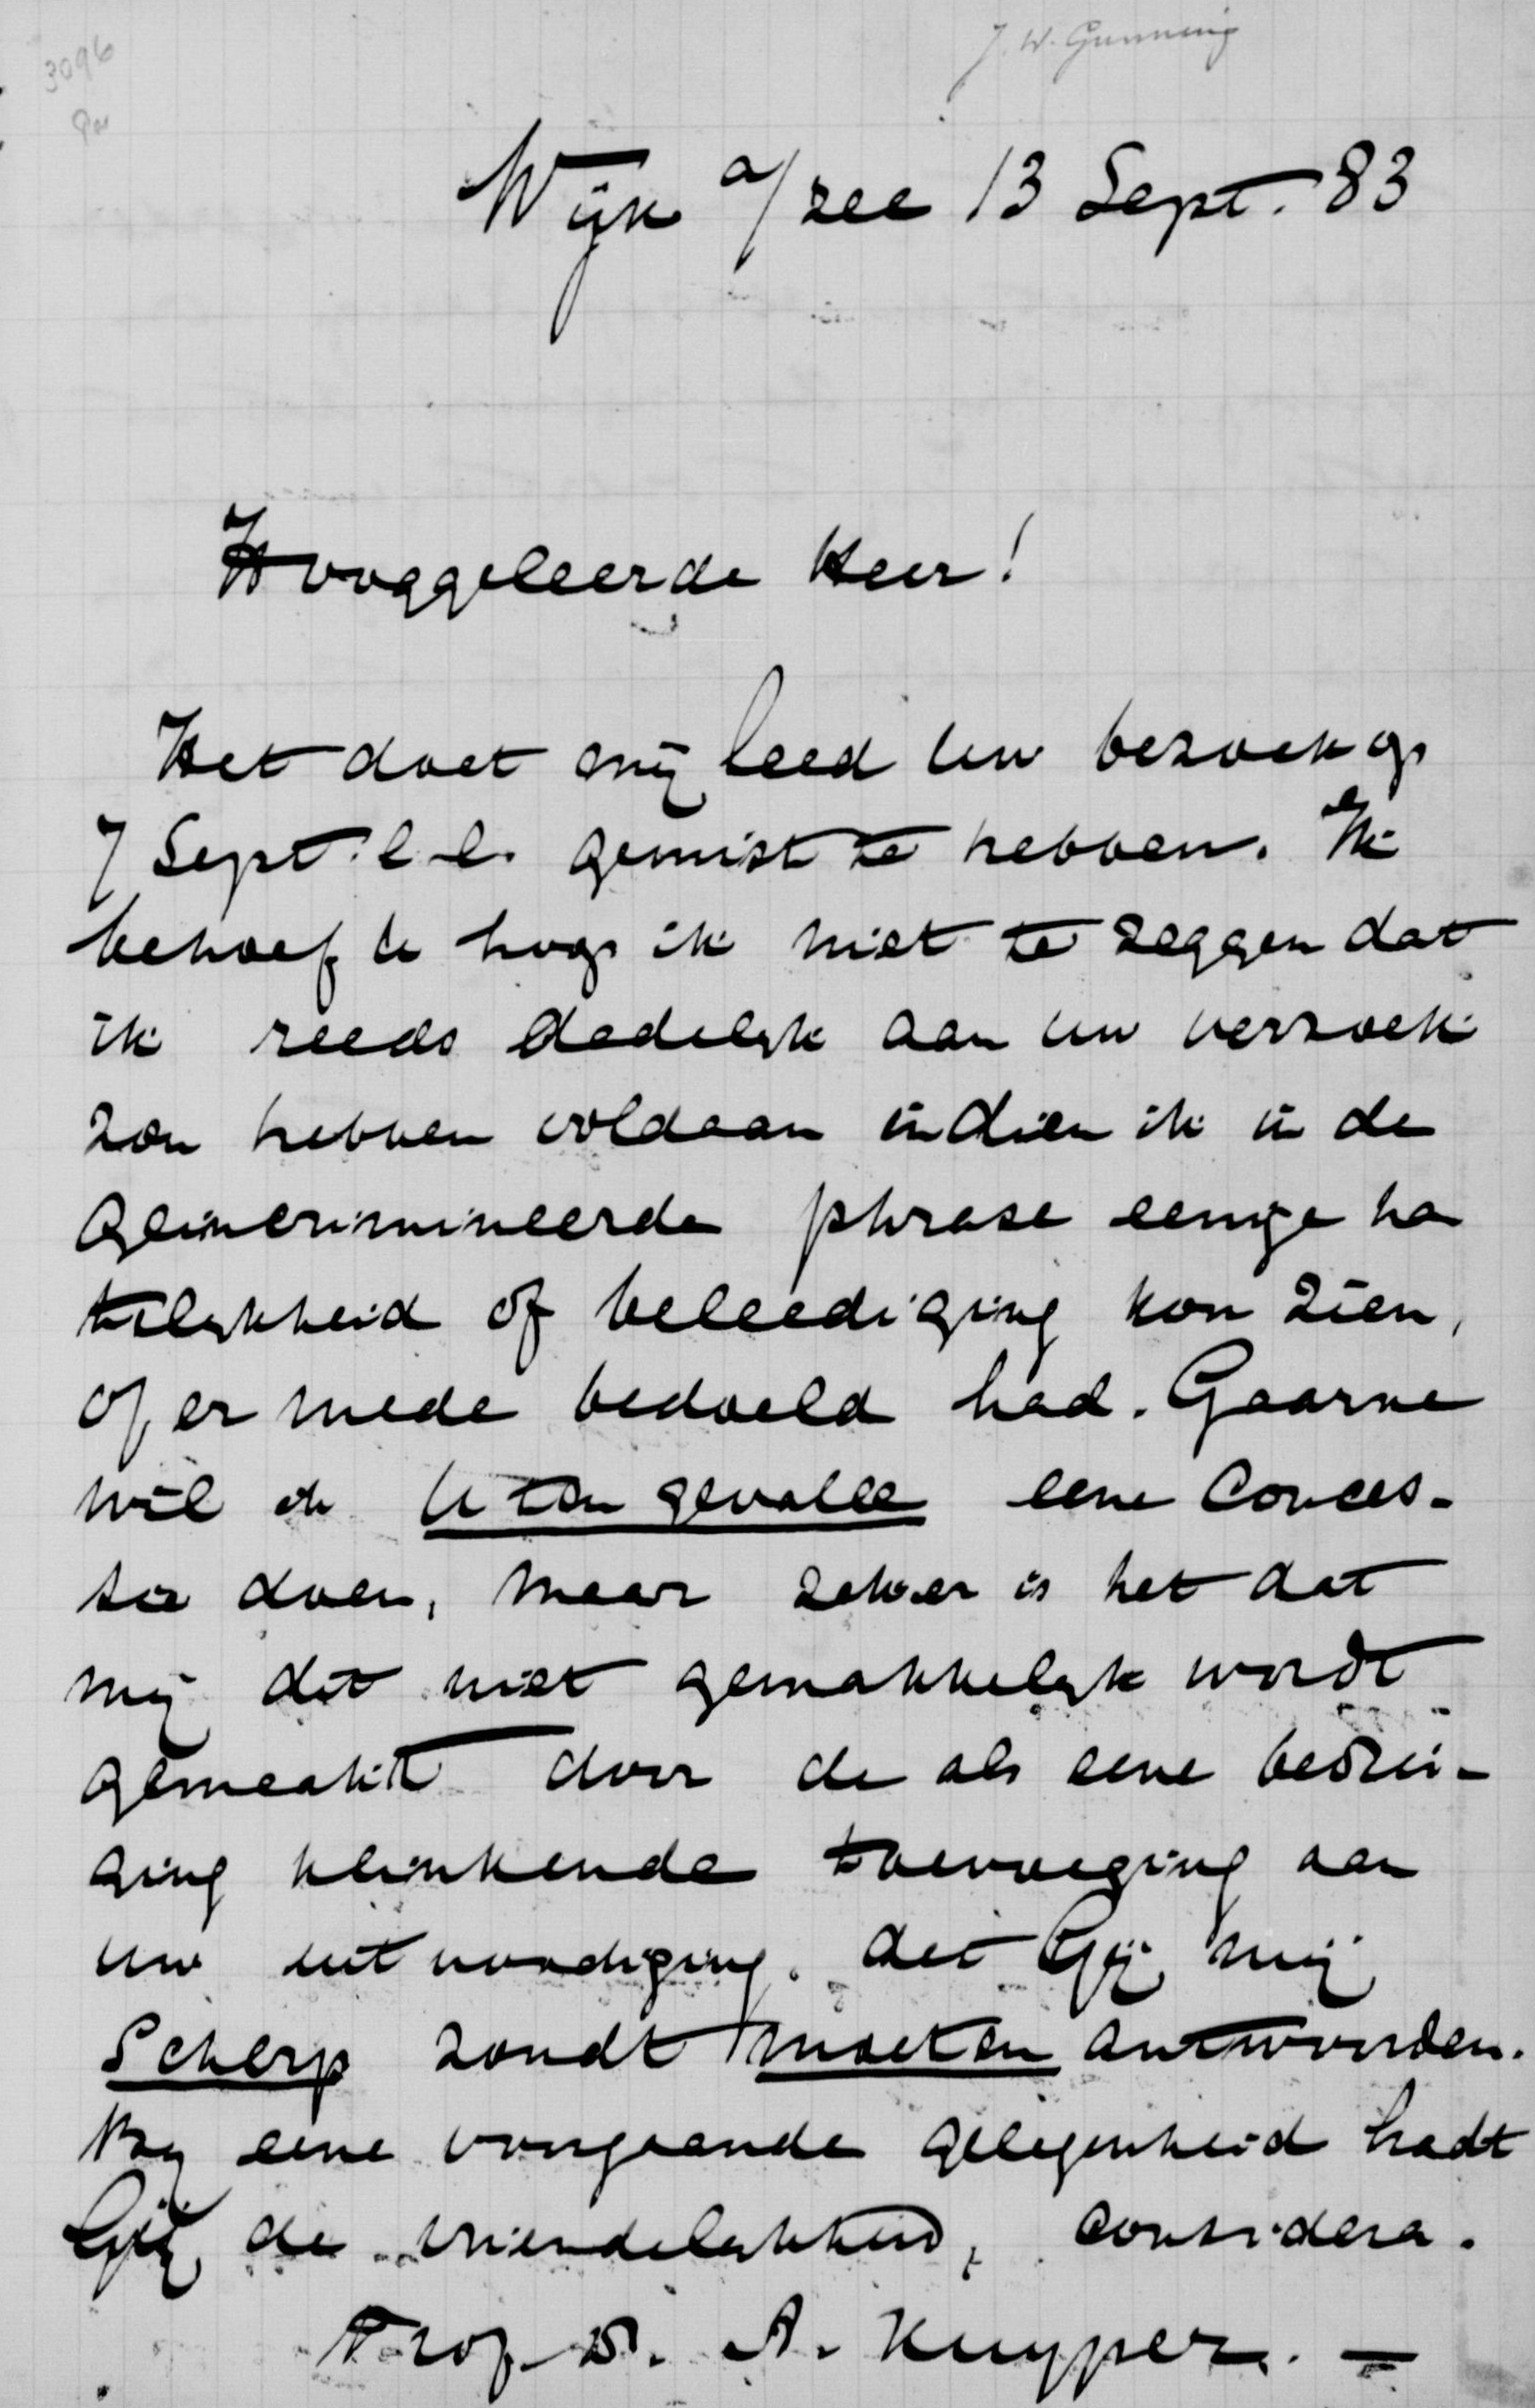 J. W. Gunning
3096
Wijk a/zee 13 Sept. 83
Hooggeleerde Heer!
Het doet mij leed Uw bezoek op
7 Sept. l.l. gemist te hebben. Ik
behoef U hoop ik niet te zeggen dat
ik reeds dadelijk aan Uw verzoek
zou hebben voldaan indien ik in de
geincrimineerde phrase eenige ha
telijkheid of beleediging kon zien,
of er mede bedoeld had. Gaarne
wil ik U ten gevalle eene Conces-
sie doen, maar zeker is het dat
mij dit niet gemakkelijk wordt
gemaakt door de als eene bedrei-
ging klinkende toevoeging aan
uw uitnoodiging, dat Gij mij
Scherp zoudt moeten antwoorden.
Bij eene voorgaande gelegenheid hadt
Gij de vriendelijkheid, considera.
Prof. Dr. A. Kuyper. —